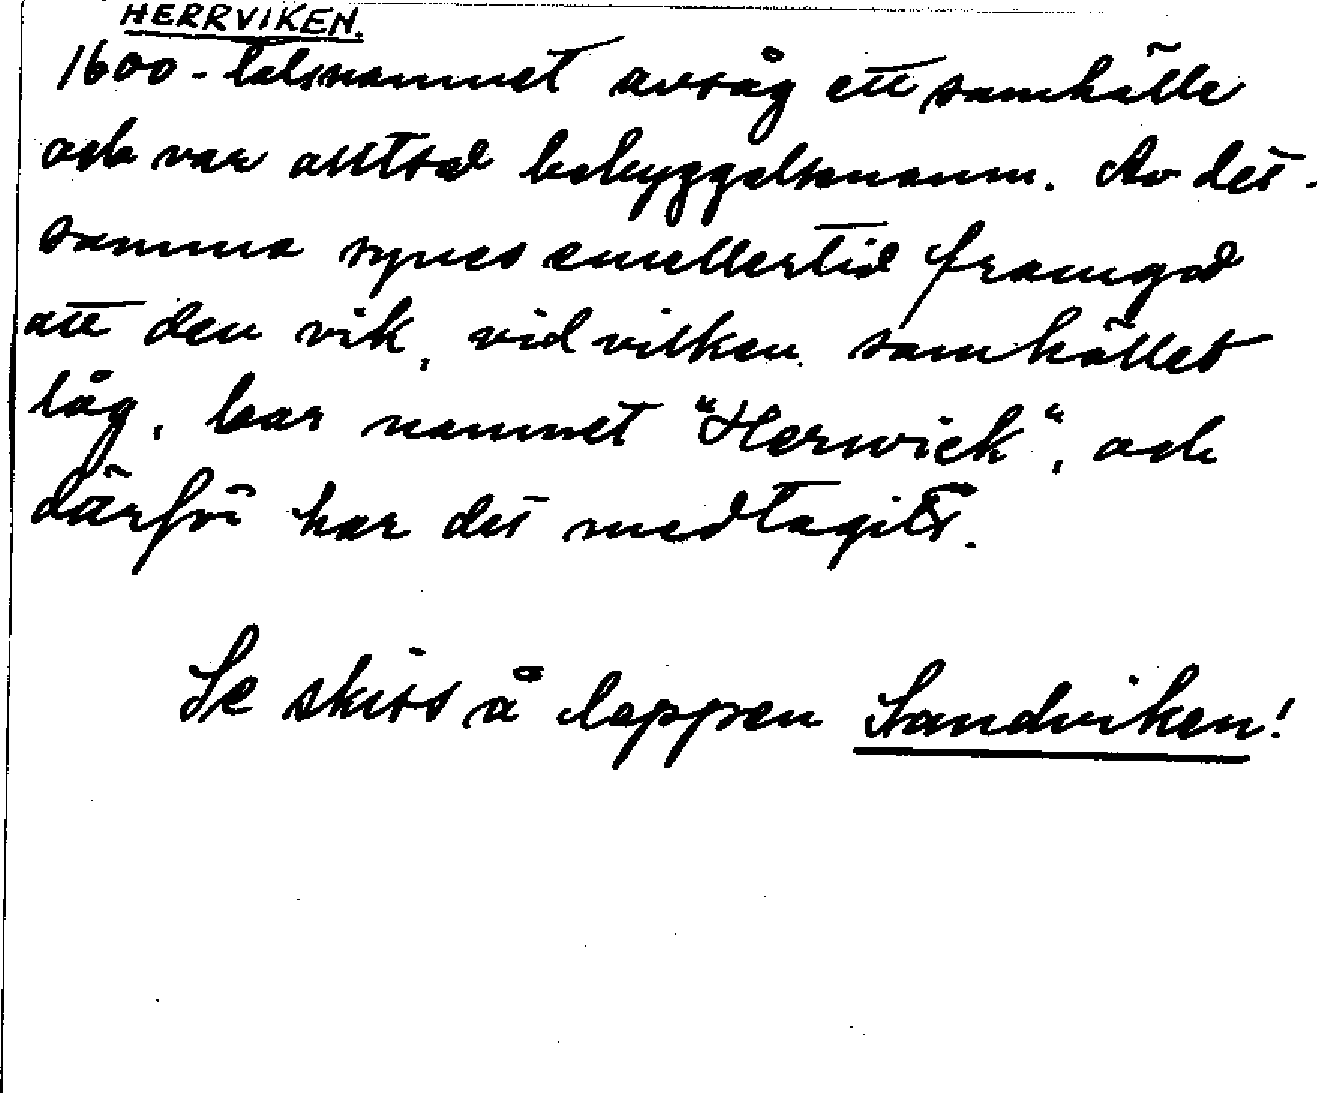 HERRVIKEN.
1600-talsnamnet avsåg ett samhälle
och var alltså bebyggelsenamn. Av det-
samma synes emellertid framgå
att den vik, vid vilken samhället
låg, bar namnet "Herwick", och
därför har det medtagits.
Se skiss å lappen Sandviken!